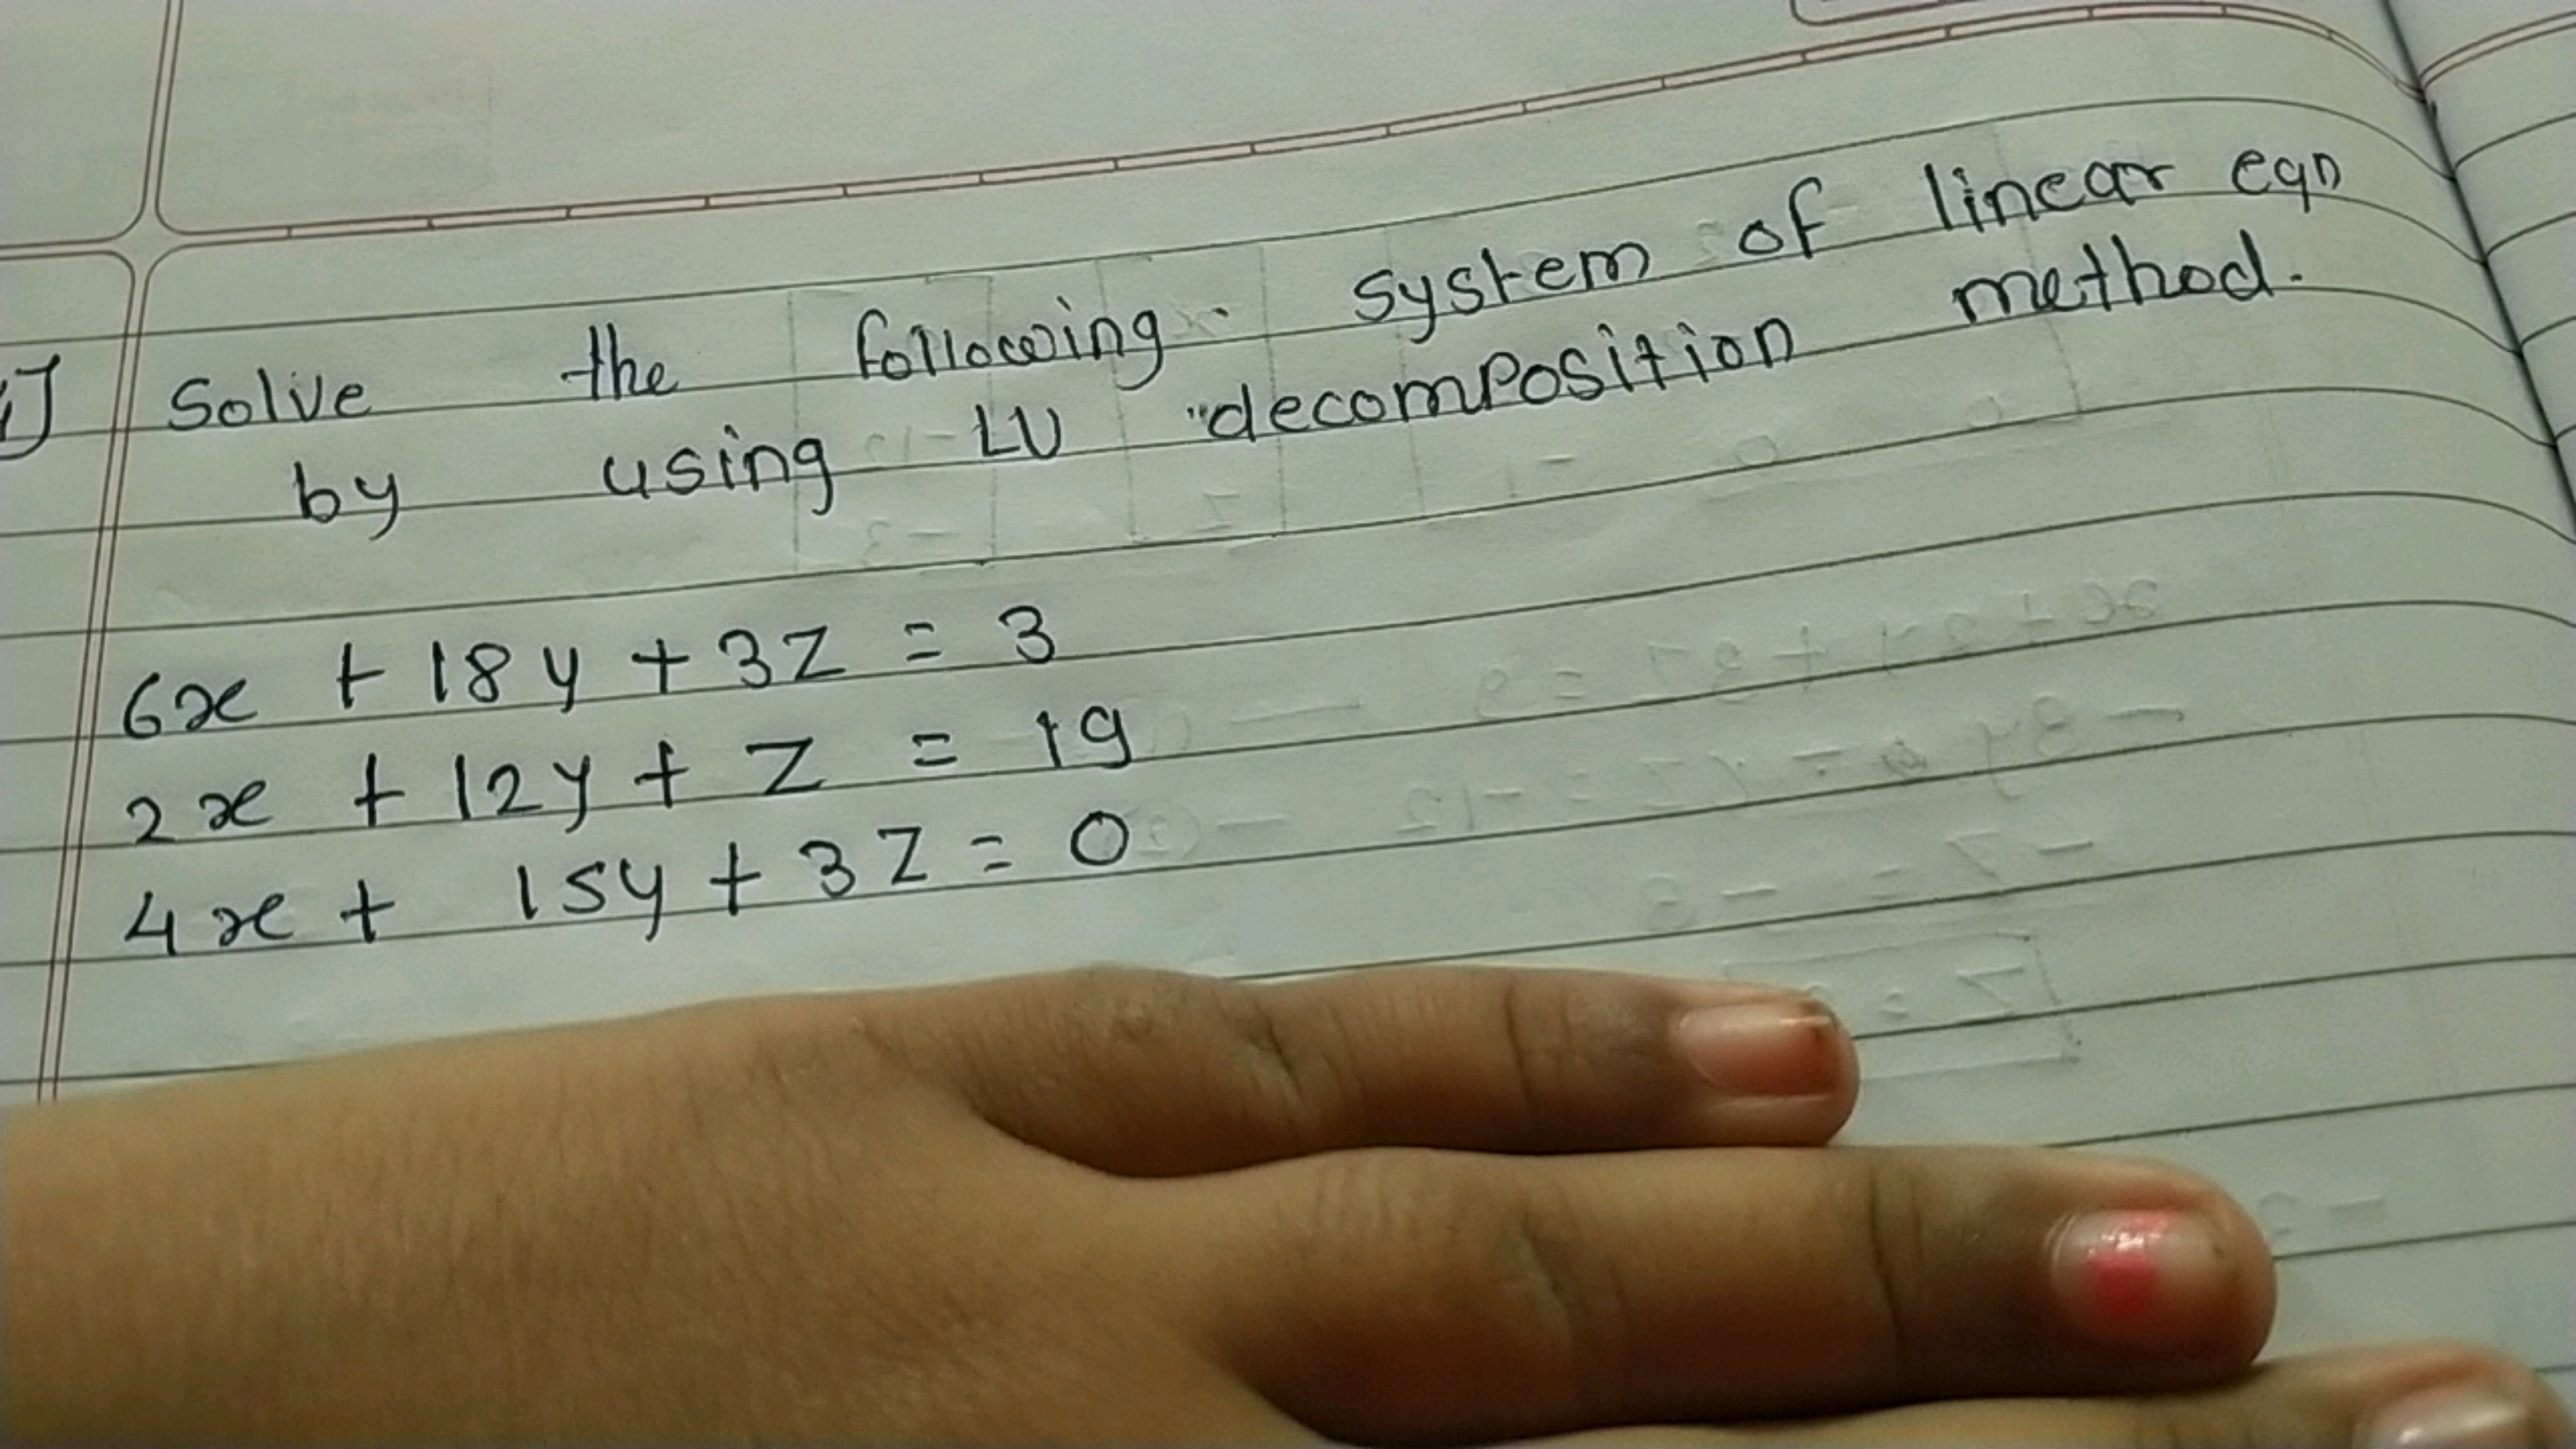 1] Solve the following system of linear eqn
by using LU decomposition method.
6x + 18y + 3z = 3
2x + 12y + z = 19
4x + 15y + 3z = 0